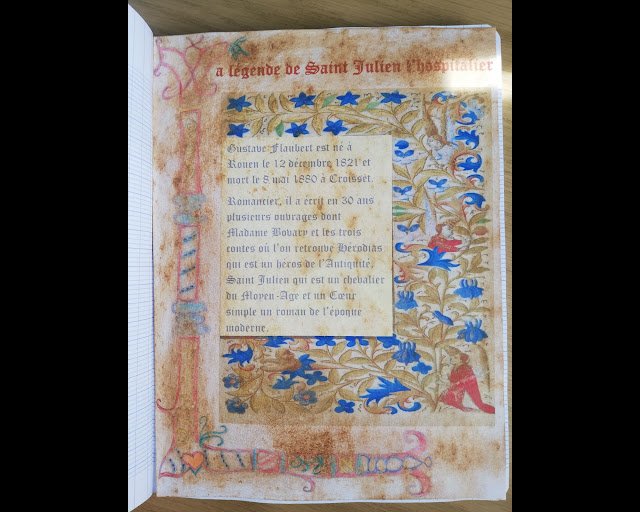 a légende de Saint Julien l'hospitalier
Gustave Flaubert est né à
Rouen le 12 décembre 1821 et
mort le 8 mai 1880 à Croisset.
Romancier, il a écrit en 30 ans
plusieurs ouvrages dont
Madame Bovary et les trois
contes où l'on retrouve Hérodias
qui est un héros de l'Antiquité,
Saint Julien qui est un chevalier
du Moyen-Age et un Cœur
simple un roman de l'époque
moderne.